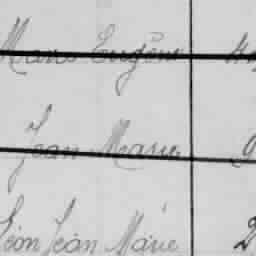 Marie Eugène
Jean Marie
Léon Jean Marie 2